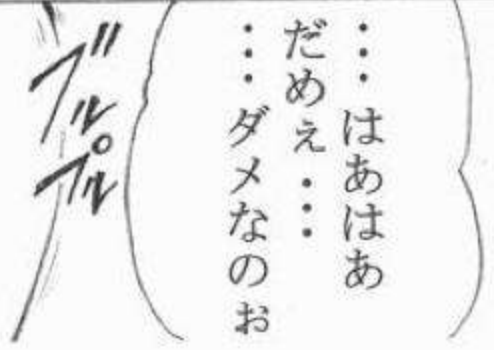 …はあはあ
だめぇ…
…ダメなのぉ
ブルプル